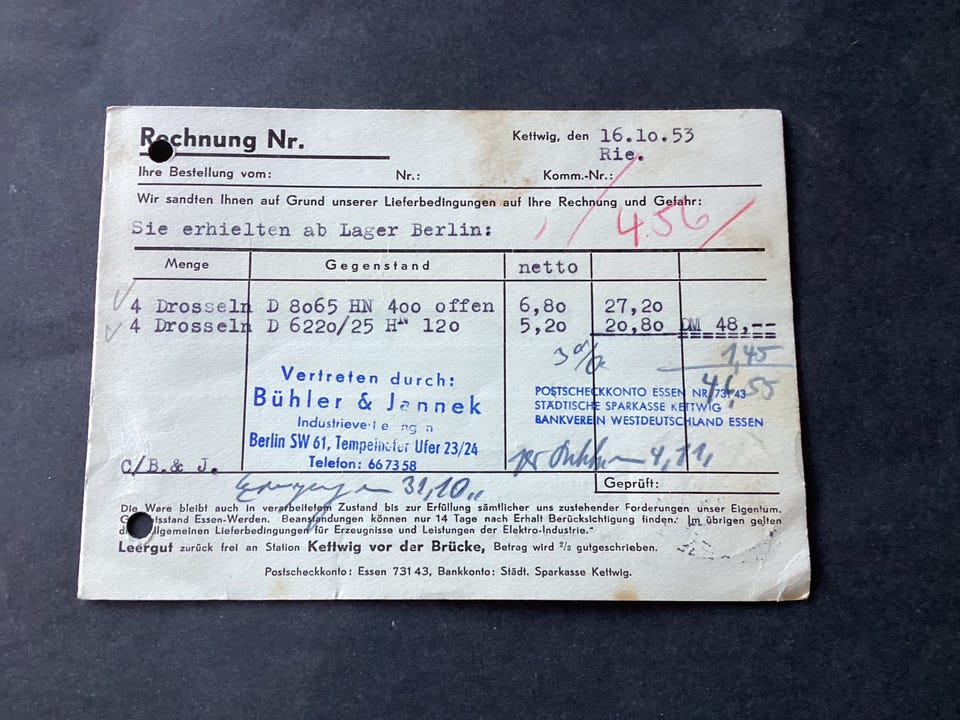 Rechnung Nr.
Kettwig, den 16.10.53
Rie.
Ihre Bestellung vom: Nr.: Komm.-Nr.:
Wir sandten Ihnen auf Grund unserer Lieferbedingungen auf Ihre Rechnung und Gefahr:
Sie erhielten ab Lager Berlin:
456
Menge Gegenstand netto
4 Drosseln D 8065 HN 400 offen 6,80 27,20
4 Drosseln D 6220/25 HN 120 5,20 20,80 DM 48,--
3% 1,45
Vertreten durch:
Bühler & Jannek
Berlin SW 61, Tempelhofer Ufer 23/24
Telefon: 667358
POSTSCHECKKONTO ESSEN NR. 73143
STÄDTISCHE SPARKASSE KETTWIG
BANKVEREIN WESTDEUTSCHLAND ESSEN
C/B.& J.
31,10,,
4,11,
Geprüft:
Die Ware bleibt auch in verarbeitetem Zustand bis zur Erfüllung sämtlicher uns zustehender Forderungen unser Eigentum.
Gerichtsstand Essen-Werden. Beanstandungen können nur 14 Tage nach Erhalt Berücksichtigung finden. Im übrigen gelten
die „Allgemeinen Lieferbedingungen für Erzeugnisse und Leistungen der Elektro-Industrie."
Leergut zurück frei an Station Kettwig vor der Brücke, Betrag wird 2/3 gutgeschrieben.
Postscheckkonto: Essen 73143, Bankkonto: Städt. Sparkasse Kettwig.